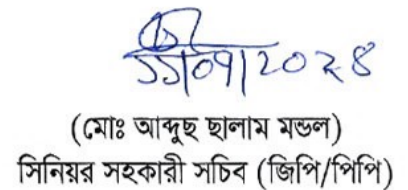 ১১/০৭/২০২৪
(মোঃ আব্দুছ ছালাম মন্ডল)
সিনিয়র সহকারী সচিব (জিপি/পিপি)